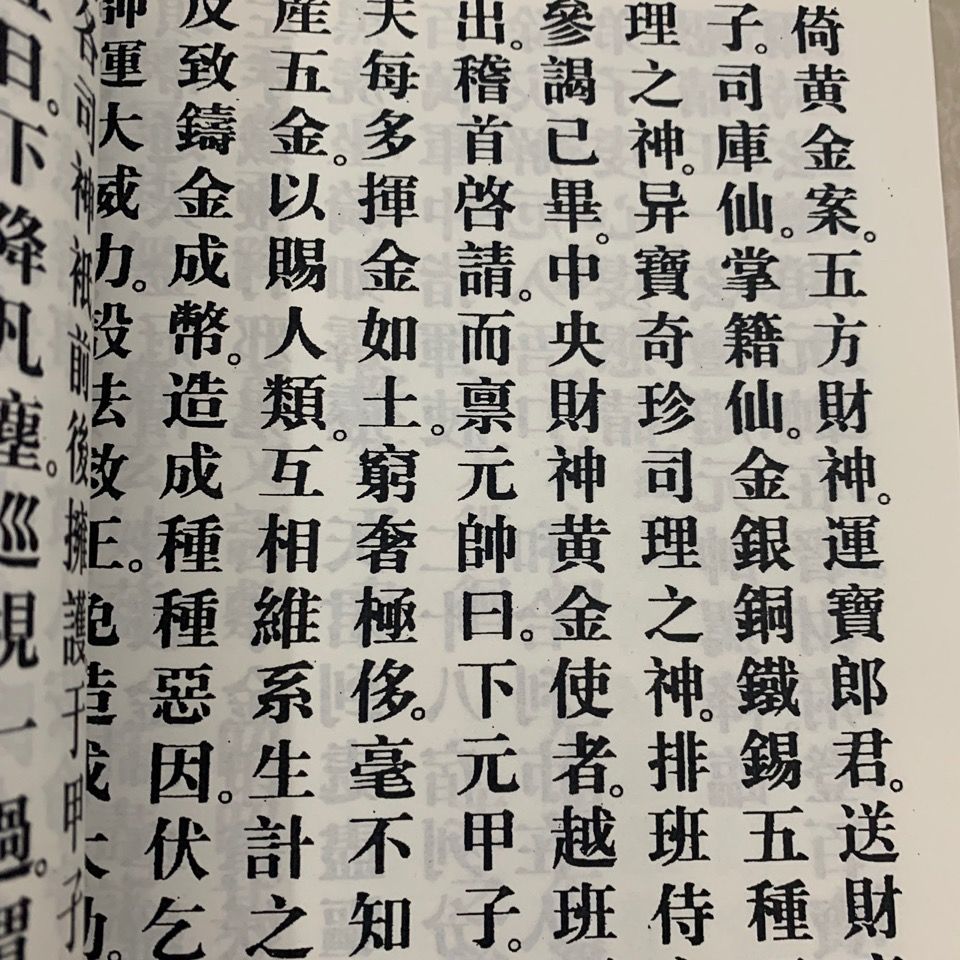 倚黄金案。五方財神。運寶郎君。送財
子。司庫仙。掌籍仙。金銀銅鐵錫五種
理之神。异寶奇珍司理之神。排班侍
參謁已畢。中央財神黄金使者。越班
出。稽首啓請。而禀元帥曰。下元甲子。
夫每多揮金如土。窮奢極侈。毫不知
産五金。以賜人類。互相維系生計之
反致鑄金成幣。造成種種惡因。伏乞
帥運大威力。設法救正。免造成大
各司神祇前後擁護于甲子
日。下降凡塵。巡視一過。